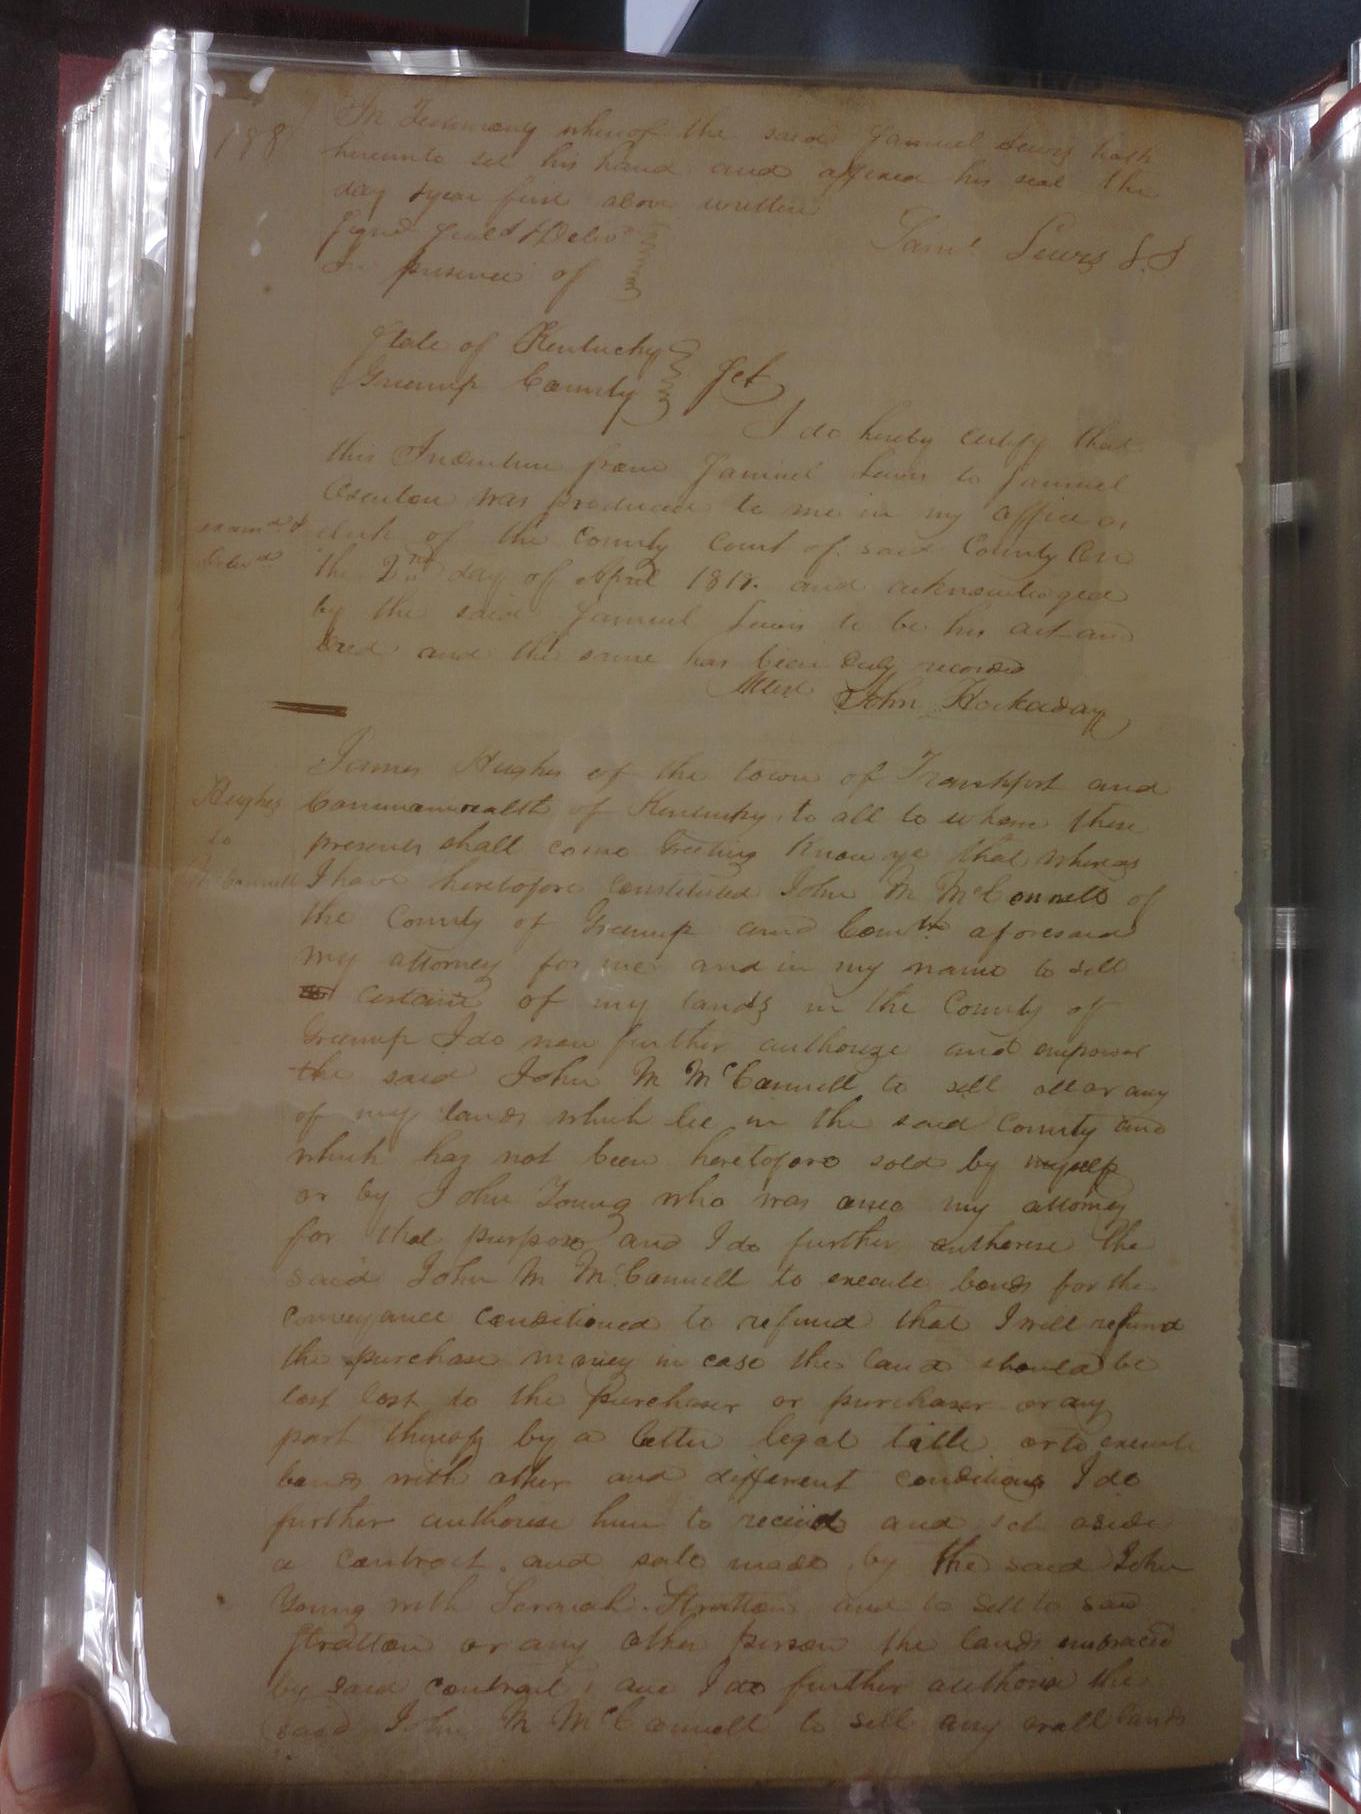 188
In Testimony whereof the said Samuel Lewis hath
hereunto set his hand and affixed his seal the
day & year first above written
Signd Seald & Delivd
In presence of
Saml Lewis L.S
State of Kentucky
Greenup County Sct
I do hereby certify that
this Indenture from Samuel Lewis to Samuel
Osenton was produced to me in my office as
examd &
clerk of the County Court of said County On
Delivd
the 2nd day of April 1818. and acknowledged
by the said Samuel Lewis to be his act and
Deed and the same has been duly recorded
Attest John Hockaday
James Hughes of the town of Frankfort and
Hughes
Commonwealth of Kentucky to all to whom these
to
presents shall come Greeting Know ye that whereas
McConnell
I have heretofore constituted John M McConnell of
the County of Greenup and Comth aforesaid
my attorney for me and in my name to sell
certain of my lands in the County of
Greenup I do now further authorize and empower
the said John M McConnell to sell all or any
of my lands which lie in the said County and
which has not been heretofore sold by myself
or by John Young who was also my attorney
for that purpose and I do further authorise the
said John M McConnell to execute bonds for the
conveyance conditioned to refund that I will refund
the purchase money in case the land should be
lost lost to the purchaser or purchaser or any
part thereof by a better legal title or to execute
bonds with other and different conditions I do
further authorise him to and set aside
a contract and sale made by the said John
Young with Stratton and to sell to said
Stratton or any other person the lands embraced
by said contract, and I do further authorise the
said John M McConnell to sell any or all lands